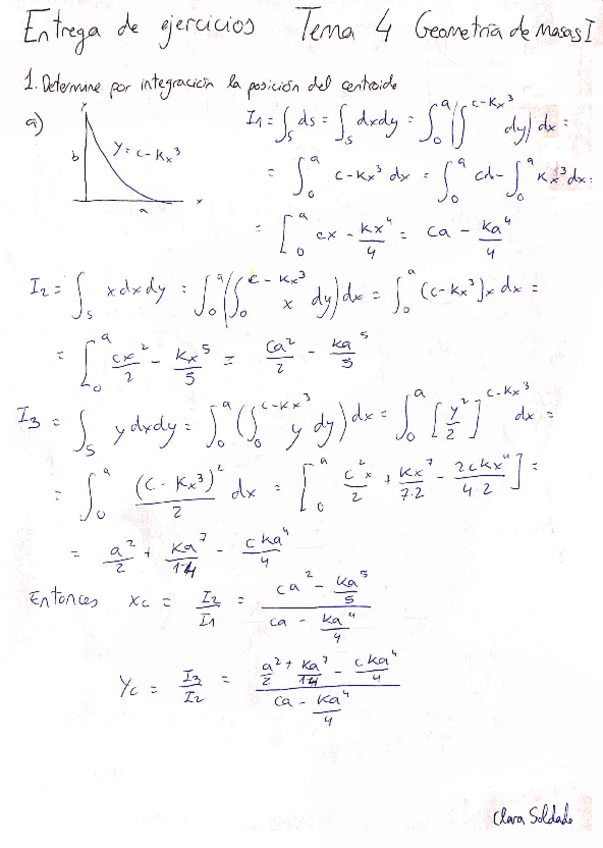 Entrega de ejercicios Tema 4 Geometría de Masas I
1. Determine por integración la posición del centroide
a) y b y = c - Kx³ a x
I₁ = ∫_S ds = ∫_S dxdy = ∫₀^a (∫^(c-Kx³) dy) dx =
= ∫₀^a c - Kx³ dx = ∫₀^a cdx - ∫₀^a Kx³ dx =
= [₀^a cx - kx⁴/4 = ca - ka⁴/4
I₂ = ∫_S x dxdy = ∫₀^a (∫₀^(c-Kx³) x dy) dx = ∫₀^a (c-Kx³)x dx =
= [₀^a cx²/2 - Kx⁵/5 = ca²/2 - ka⁵/5
I₃ = ∫_S y dxdy = ∫₀^a (∫₀^(c-Kx³) y dy) dx = ∫₀^a [y²/2]^(c-Kx³) dx =
= ∫₀^a (c-Kx³)²/2 dx = [₀^a c²x/2 + Kx⁷/7·2 - 2ckx⁴/4·2] =
= a²/2 + Ka⁷/14 - cKa⁴/4
Entonces xc = I₂/I₁ = (ca² - Ka⁵/5)/(ca - Ka⁴/4)
Yc = I₃/I₂ = (a²/2 + Ka⁷/14 - cKa⁴/4)/(ca - Ka⁴/4)
Clara Soldado